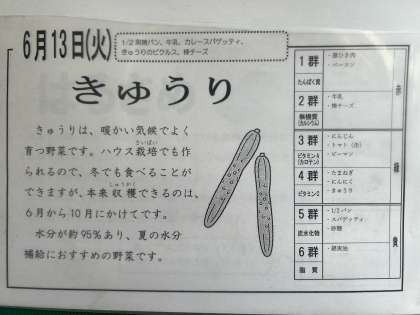 6月13日(火)
1/2黒糖パン、牛乳、カレースパゲッティ、
きゅうりのピクルス、棒チーズ
きゅうり
きゅうりは、暖かい気候でよく
育つ野菜です。ハウス栽培でも作
られるので、冬でも食べることが
できますが、本来収穫できるのは、
6月から10月にかけてです。
水分が約95%あり、夏の水分
補給におすすめの野菜です。
1群
たんぱく質
・豚ひき肉
・ベーコン
2群
無機質
(カルシウム)
・牛乳
・棒チーズ
3群
ビタミンA
(カロテン)
・にんじん
・トマト(缶)
・ピーマン
4群
ビタミンC
・たまねぎ
・にんにく
・きゅうり
5群
炭水化物
・1/2パン
・スパゲッティ
・砂糖
6群
脂質
赤
緑
黄